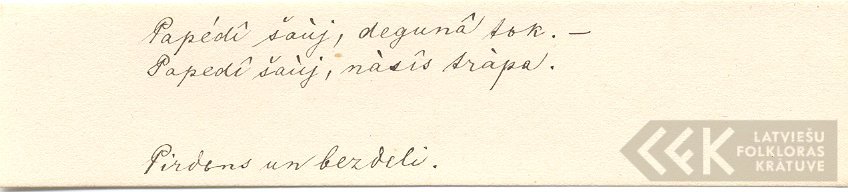 Papédî šaùj, degunâ tok. –
Papedî šaùj, nàsîs tràpa.
Pirdens un bezdeli.
LATVIEŠU
FOLKLORAS
KRĀTUVE